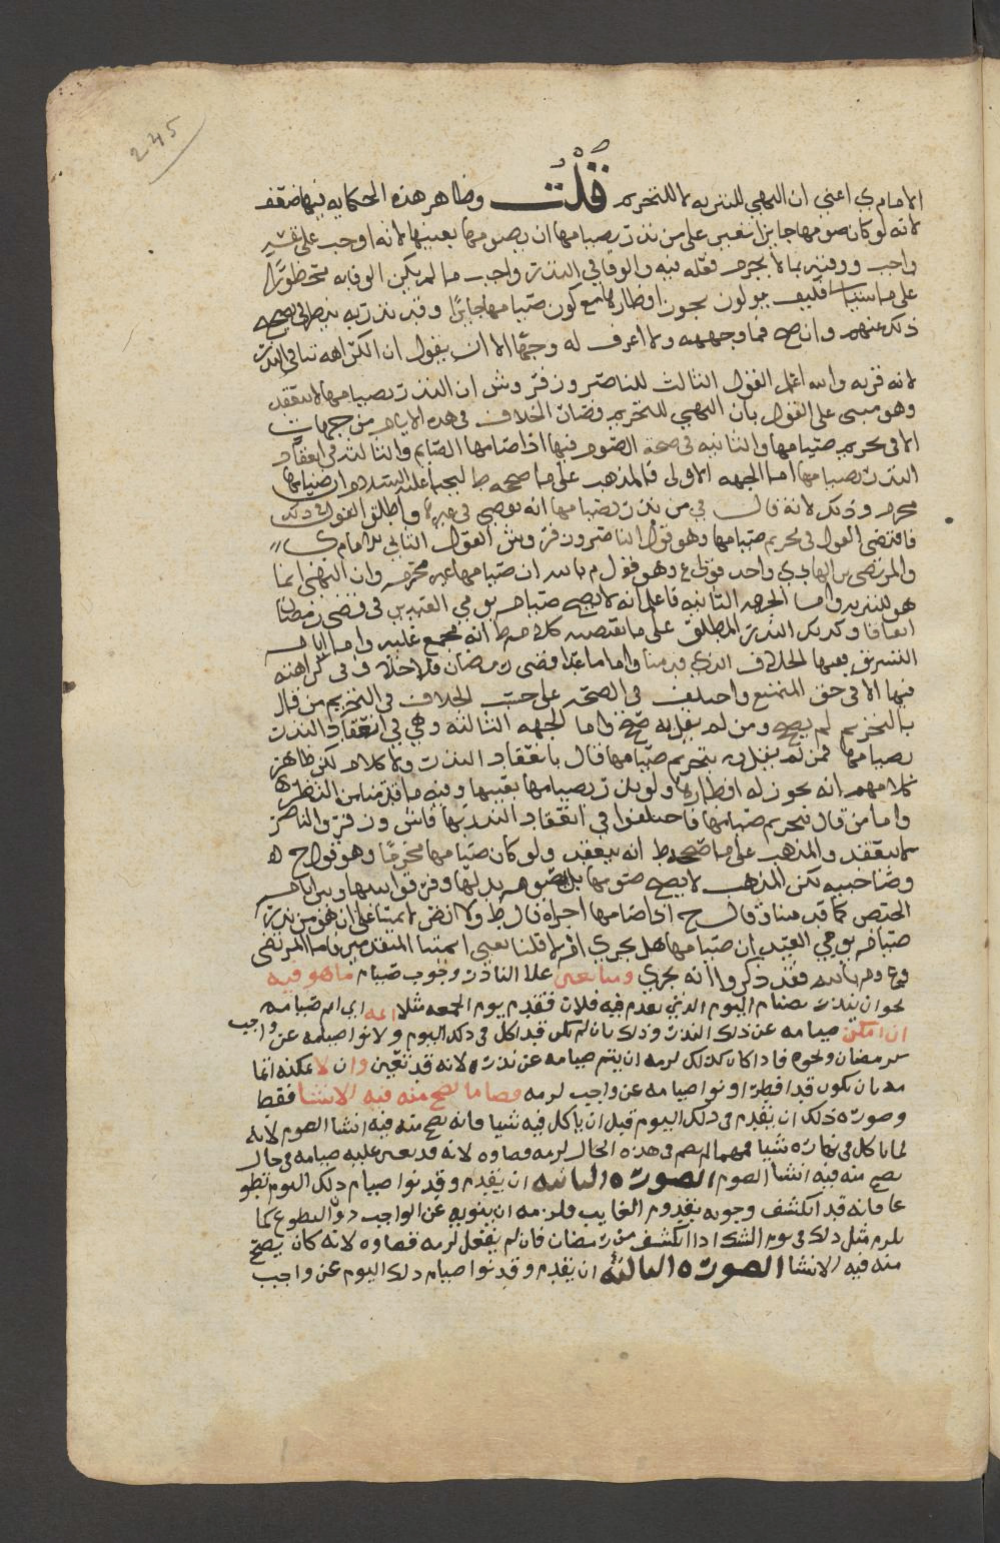 245
الامام ي اعني ان النهي للتنزيه لا للتحريم قلت وظاهر هذه الحكايه فيها ضعف
لانه لو كان صومها جايزا تعين على من نذر بصيامها ان يصومها بعينها لانه اوجب على نفسه
واجب ووقته بما لا يحرم فعله فيه والوفا في النذر واجب ما لم يكن الوفا به محظورًا
على ما سياتى فكيف يقولون يجوز افطارها مع كون صيامها جايزًا وقد نذر به
ذلك عنهم وان صح فما وجهه ولا اعرف له وجهًا الا ان يقول ان الكراهه تنافي النذر
لانه قربه والله اعلم القول الثالث للناصر وزفر وش ان النذر بصيامها لا ينعقد
وهو مبنى على القول بان النهي للتحريم وصار الخلاف في هذه الايام من جهات
الاولى في تحريم صيامها والثانيه فى صحة الصوم فيها اذا صامها الصايم والثالثه في انعقاد
النذر بصيامها اما الجهه الاولى فالمذهب على ما صححه ط ليحيى عليه السلام ان صيامها
محرم وذلك لانه قال في من نذر بصيامها انه يعصي واطلق القول في ذلك
فاقتضى القول بتحريم صيامها وهو قول الناصر وزفر وش القول الثاني للامام ي
والمرتضى بن الهادي واحد قولي ع وهو قول م بالله ان صيامها غير محرم وان النهي انما
هو للتنزيه واما الجهه الثانيه فاعلم انه لا يصح صيام يومي العيدين في قضى رمضان
اتفاقا وكذلك النذر المطلق على ما يقتضيه كلام ط انه مجمع عليه واما ايام
التشريق ففيها الخلاف الذي قدمنا واما ما عدا قضى رمضان فلا خلاف فى كراهته
فيها الا في حق المتمتع واختلف في الصحه على حسب الخلاف في التحريم من قال
بالتحريم لم يصح ومن لم يقل به صح واما الجهه الثالثه وهي في انعقاد النذر
بصيامها فمن لم يقل بتحريم صيامها قال بانعقاد النذر ولا كلام لكن ظاهر
كلامهم انه يجوز له افطارها ولو نذر بصيامها بعينها وفيه ما قدمنا من النظر
واما من قال بتحريم صيامها فاختلفوا في انعقاد النذر بها فاش وزفر والناصر
لا ينعقد والمذهب على ما صححه ط انه ينعقد ولو كان صيامها محرمًا وهو قول ح
وصاحبيه لكن المذهب لا يصح صومها بل يصوم بدلها وفرقوا بينها وبين ايام
الحيض كما قدمنا وقال ح اذا صامها اجزاه قال ط ولا نص لايمتنا على ان هو من نذر
صيام يومي العيد ان صيامها هل يجزي ام لا قلنا يعني ايمتنا المتقدمين فاما المرتضى
وع وم بالله فقد ذكروا انه يجزي ومتا تعين على الناذر وجوب صيام ما هو فيه
نحو ان ينذر بصيام اليوم الذي يقدم فيه فلان فقدم يوم الجمعه مثلا اتمه اي اتم صيامه
ان امكن صيامه عن ذلك النذر وذلك بان لم يكن قد اكل في ذلك اليوم ولا نوا صيامه عن واجب
من رمضان ونحوه فاذا كان كذلك لزمه ان يتم صيامه عن نذره لانه قد تعين وان لا يمكنه اتمامه
بان يكون قد افطر او نوا صيامه عن واجب لزمه قضا ما يصح منه فيه الانشا فقط
وصورة ذلك ان يقدم في ذلك اليوم قبل ان ياكل فيه شيا فانه يصح منه فيه انشا الصوم لانه
لما ياكل في نهاره شيا فمهما لم يصم في هذه الحال لزمه قضاوه لانه قد تعين عليه صيامه في حال
يصح منه فيه انشا الصوم الصورة الثانيه ان يقدم وقد نوا صيام ذلك اليوم تطو
عا فانه قد انكشف وجوبه بقدوم الغايب ولزمه ان ينويه عن الواجب دون التطوع كما
يلزم مثل ذلك في يوم الشك اذا انكشف من رمضان فان لم يفعل لزمه قضاوه لانه كان يصح
منه فيه الانشا الصورة الثالثه ان يقدم وقد نوا صيام ذلك اليوم عن واجب